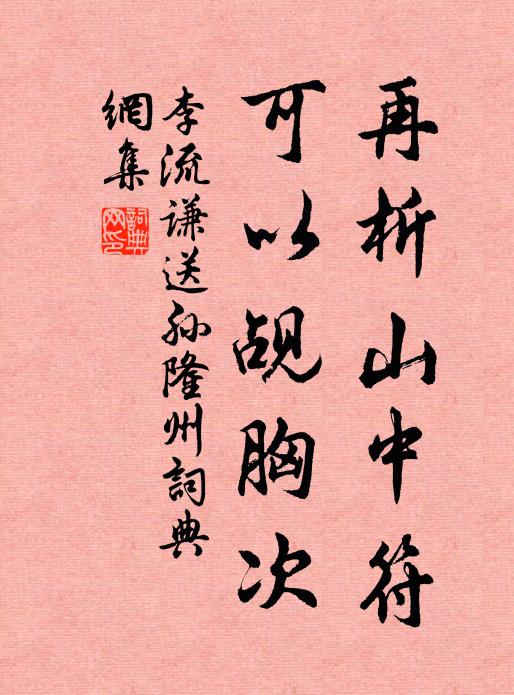 再析山中符
可以觇胸次
李流謙送孫隆州詞典
網集
詞典
网印